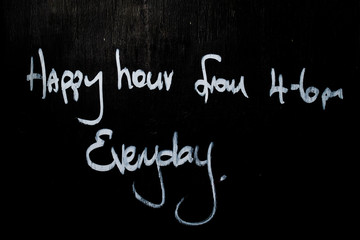 Happy hour from 4-6pm
Everyday.